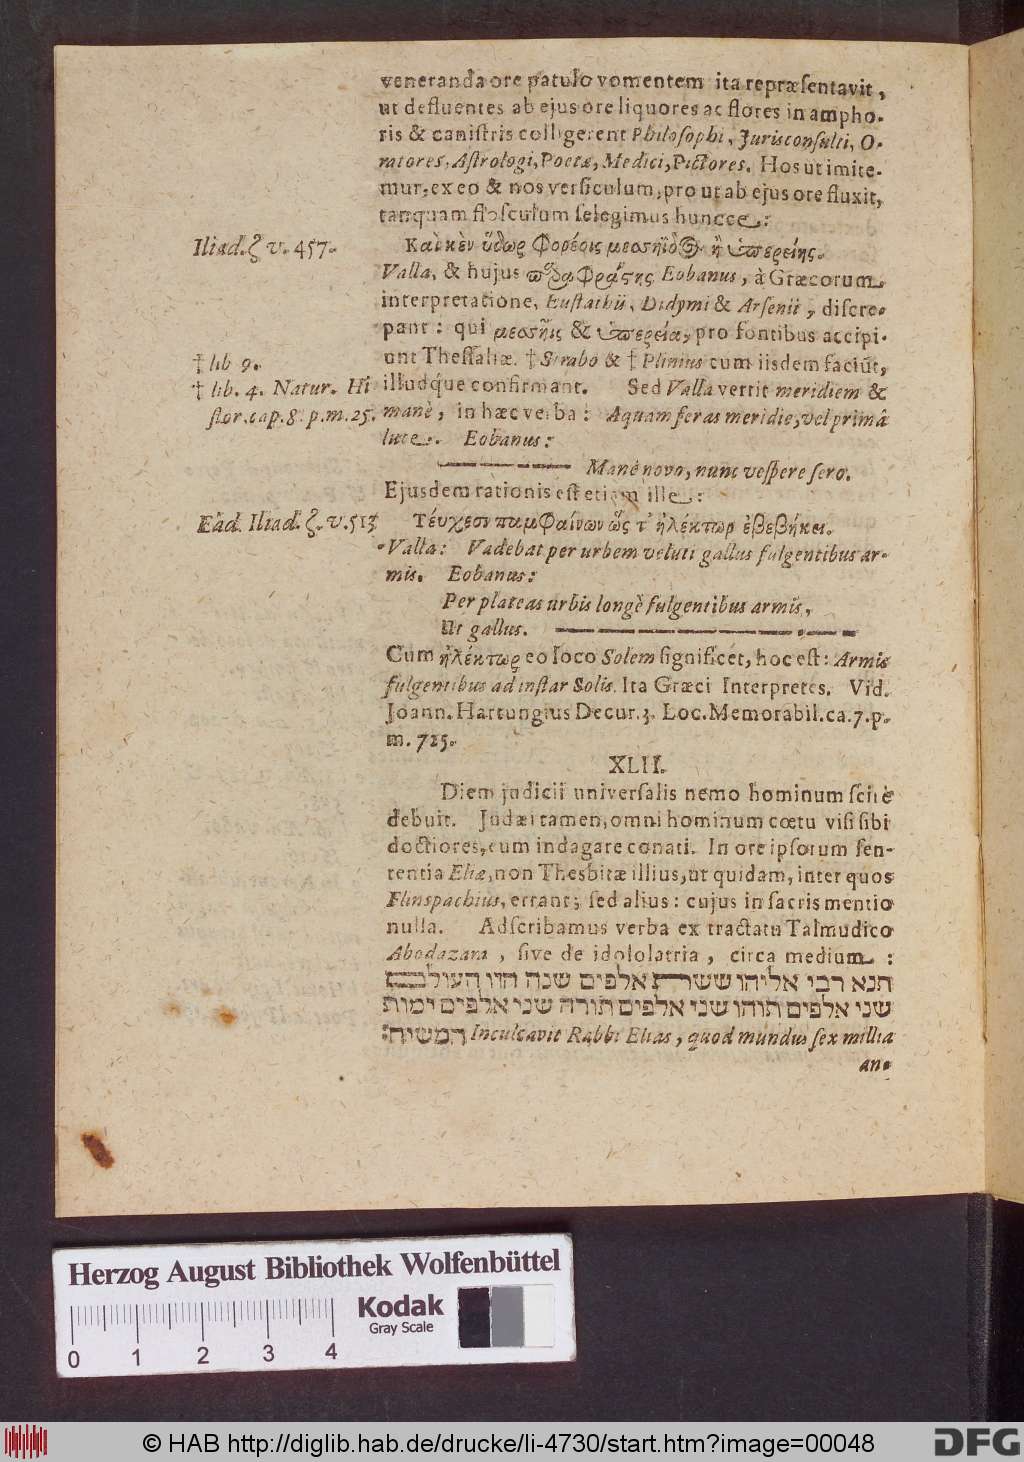 veneranda ore patulo vomentem ita repræsentavit,
ut defluentes ab ejus ore liquores ac flores in ampho-
ris & canistris colligerent Philosophi, Jurisconsulti, O-
ratores, Astrologi, Poetæ, Medici, Pictores. Hos ut imite-
mur, ex eo & nos versiculum, pro ut ab ejus ore fluxit,
tanquam flosculum selegimus huncce:
Iliad. ζ v. 457.
Καὶ κὲν ὕδωρ φορέοις μεσσηΐδος ἢ ὑπερείης.
Valla, & hujus Eobanus, à Græcorum
interpretatione, Eustathii, Didymi & Arsenii, discre-
pant: qui & ὑπερεία, pro fontibus accipi-
unt Thessaliæ. † Strabo & † Plinius cum iisdem faciūt,
† lib 9.
† lib. 4. Natur. Hi
stor. cap. 8. p. m. 25.
illudq́ue confirmant. Sed Valla vertit meridiem &
manè, in hæc verba: Aquam feras meridie, vel primâ
luce. Eobanus:
Manè novo, nunc vespere sero.
Ejusdem rationis est etiam ille:
Eâd. Iliad. ζ. v. 513
Τεύχεσι παμφαίνων ὥς τ' ἠλέκτωρ ἐβεβήκει.
Valla: Vadebat per urbem veluti gallus fulgentibus ar-
mis. Eobanus:
Per plateas urbis longè fulgentibus armis,
Ut gallus.
Cum ἠλέκτωρ eo loco Solem significet, hoc est: Armis
fulgentibus ad instar Solis. Ita Græci Interpretes. Vid.
Joann. Hartungius Decur. 3. Loc. Memorabil. ca. 7. p.
m. 725.
XLII.
Diem judicii universalis nemo hominum scire
debuit. Judæi tamen, omni hominum cœtu visi sibi
doctiores, eum indagare conati. In ore ipsorum sen-
tentia Eliæ, non Thesbitæ illius, ut quidam, inter quos
Flinspachius, errant; sed alius: cujus in sacris mentio
nulla. Adscribamus verba ex tractatu Talmudico
Abodazara, sive de idololatria, circa medium:
תנא רבי אליהו ששרת אלפים שנה הוו העולם
שני אלפים תוהו שני אלפים תורה שני אלפים ימות
המשיח: Inculcavit Rabbi Elias, quod mundus sex millia
an-
Herzog August Bibliothek Wolfenbüttel
Kodak
Gray Scale
0 1 2 3 4
© HAB http://diglib.hab.de/drucke/li-4730/start.htm?image=00048
DFG